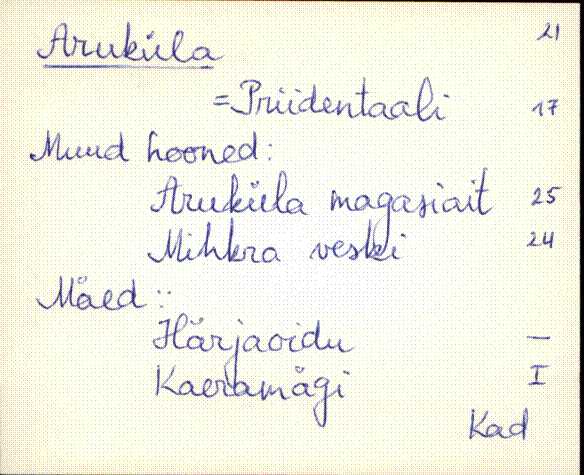 Aruküla 21
= Priidentaali 17
Muud hooned:
Aruküla magasiait 25
Mihkra veski 24
Mäed:
Härjaoidu —
Kaeramägi I
Kad